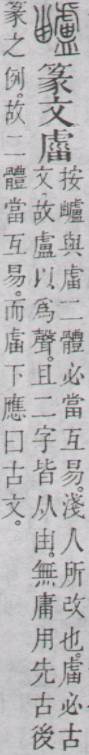 篆文𧆨
按與𧆨二體必當互易。淺人所改也。𧆨必古
文。故盧以爲聲。且二字皆从由。無庸用先古後
篆之例。故二體當互易。而𧆨下應曰古文。